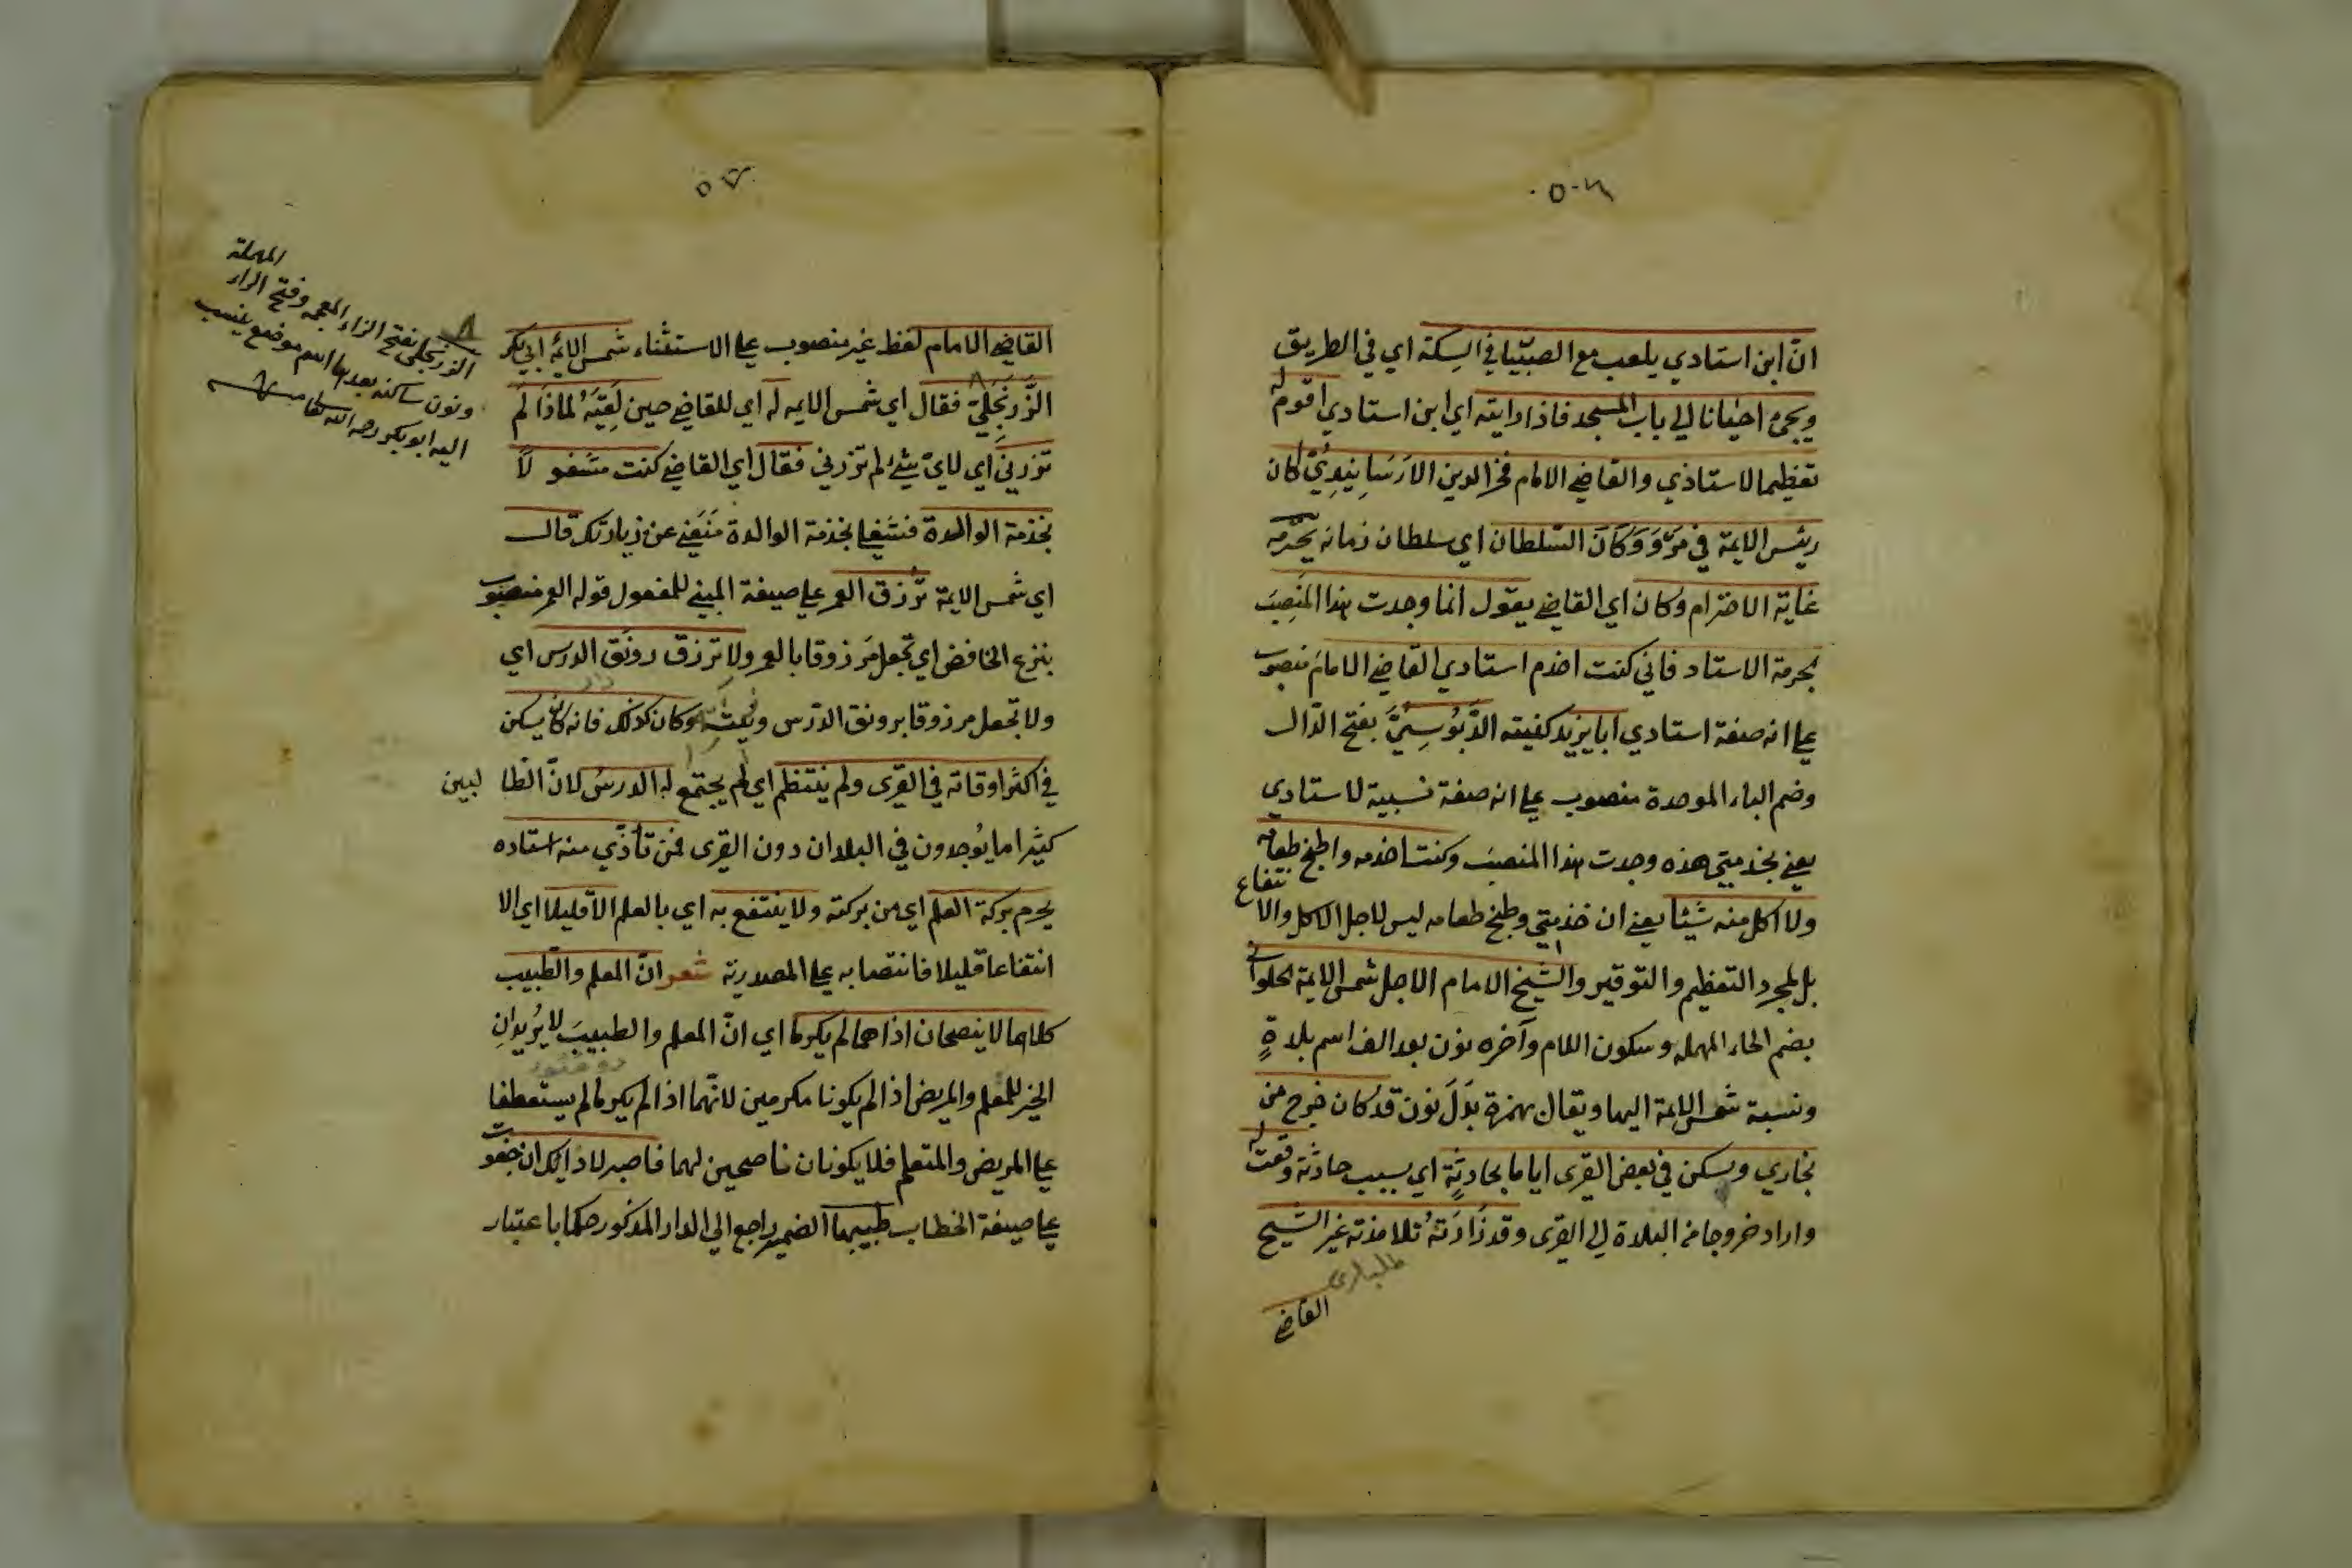 ٥٠٦
انّ ابن استادي يلعب مع الصبيان في السكة اي في الطريق
ويجئ احيانا الي باب المسجد فاذا رايته اي ابن استادي اقوم له
تعظيما لاستاذي والقاضي الامام فخر الدين الارسابنيدي كان
رئيس الايمة في مَرْوَ وَكَانَ السّلطان اي سلطان زمانه يحترمه
غاية الاحترام وكان اي القاضي يقول انما وجدت هذا المَنصِبَ
بحرمة الاستاد فاني كنت اخدم استادي القاضي الامامَ منصوب
علي انه صفة استادي ابا يزيد كنيته الدَّبُوسِيَّ بفتح الدّال
وضم الباء الموحدة منصوب علي انه صفة نسبية لاستادي
يعني بخدمتي هذه وجدت هذا المنصبَ وكنت اخدمه واطبخ طعامه
ولا اكل منه شيئا يعني ان خذمتي وطبخ طعامه ليس لاجل الاكل والانتفاع
بل لمجرد التعظيم والتوقير والشيخ الامام الاجل شمس الايمة الحلواني
بضم الحاء المهمله وسكون اللام وآخره نون بعد الف اسم بلدةٍ
ونسبة شمس الايمة اليها ويقال بهمزة بَدَلَ نون قد كان خرج من
بخاري وسكن في بعض القرى اياما بحادثةٍ اي بسبب حادثة وقعت له
واراد خروجا من البلدة الي القرى وقد زَارَتهُ تلامذته غير الشيخ
القاضي
٥٧
القاضي الامام لفظ غير منصوب علي الاستثناء شمس الايمة ابي بكر
الزَّرَنجِليّ فقال اي شمس الايمه له اي للقاضي حين لَقِيَهُ لماذا لم
تزرني اي لايّ شئ لم تزرني فقال اي القاضي كنت مشغولاً
بخذمة الوالدة فشغلي بخذمة الوالدة مَنَعَني عن زيارتك قال
اي شمس الايمة تُرزق العمر علي صيغة المبني للمفعول قوله العمر منصوب
بنزع الخافض اي تجعل مرزوقا بالعمر ولا ترزق رونق الدرس اي
ولا تجعل مرزوقا برونق الدّرس وكان كذلك فانه كان يسكن
في اكثر اوقاته في القرى ولم ينتظم اي لم يجتمع له الدرسُ لانّ الطّالبين
كثيرا ما يُوجدون في البلدان دون القرى فمن تأذّي منه استاده
يحرم بركة العلم اي من بركته ولا ينتفع به اي بالعلم الا قليلا اي الا
انتفاعا قليلا فانتصابه علي المصدرية شعر انّ المعلم والطّبيب
كلاهما لا ينصحان اذا هما لم يكرما اي انّ المعلم والطبيبَ لا يُريدانِ
الخير للمعلم والمريض اذا لم يكونا مكرمين لانّهما اذا لم يكرما لم يستعطفا
علي المريض والمتعلم فلا يكونان ناصحين لهما فاصبر لدائك ان جفوت
علي صيغة الخطاب طبيبها الضمير راجع الي الداء المذكور حكما باعتبار
الزرنجلي بفتح الزاء المعجمه وفتح الراء المهملة
ونون ساكنه بعدها اسم موضع ينسب
اليه ابو بكر رحمه الله تعالى